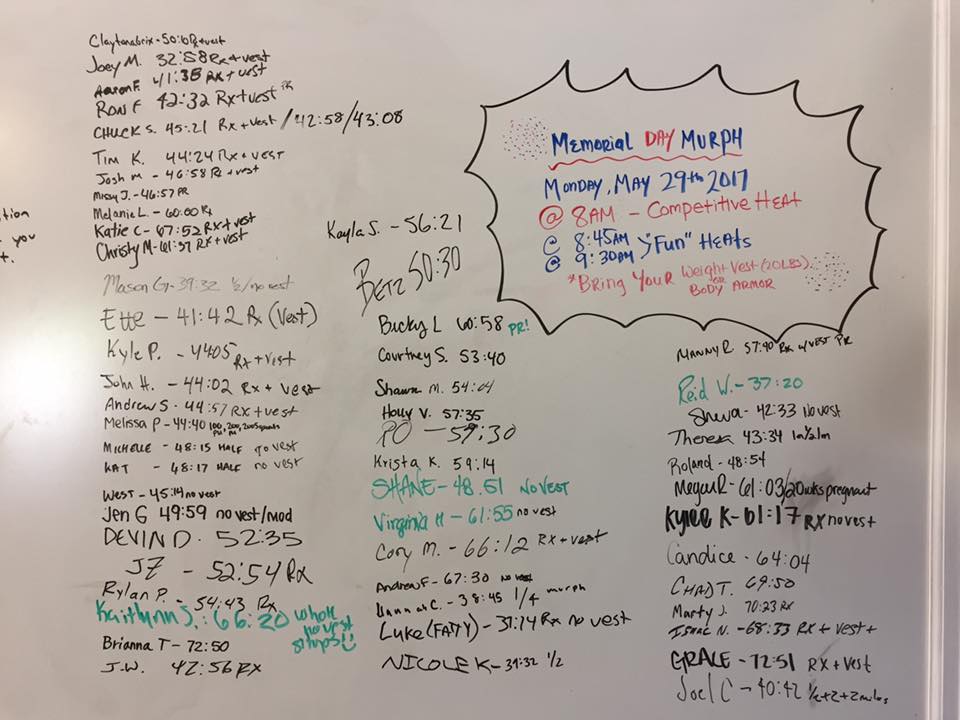 ition
you
t.
Joey M. 32:58 Rx+vest
Aaron F. 41:35 RX + vest
Ron F 42:32 RX+vest PR
CHUCK S. 45:21 RX + vest / 42:58/43:08
TIM K. 44:24 RX + VEST
Josh M - 46:58 Rx + vest
Missy J. - 46:57 PR
Melanie L. - 60:00 Rx
Katie C - 67:52 RX + vest
Christy M - 61:37 RX + vest
Mason G - 39:32 1/2 / no vest
Ette - 41:42 Rx (Vest)
Kyle P. - 4405 RX + vest
John H. - 44:02 RX + vest
Andrew S - 44:57 RX + vest
Melissa P - 44:40
MICHELLE - 48:15 HALF no vest
KAT - 48:17 HALF no vest
West - 45:14 no vest
Jen G 49:59 no vest/mod
DEVIN D. 52:35
JZ - 52:54 RX
Rylan P. - 54:43 Rx
Kaitlynn S.: 66:20 whole no vest situps!!
Brianna T - 72:50
J.W. 42:56 RX
Kayla S. - 56:21
BETZ 50:30
Bucky L 60:58 PR!
Courtney S. 53:40
Shawn M. 54:04
Holly V. 57:35
PO - 59:30
Krista K. 59:14
SHANE - 48.51 NO VEST
Virginia H - 61:55 no vest
Cory M. - 66:12 RX + vest
Andrew F - 67:30 no vest
Hannah C. - 38:45 1/4 murph
Luke (FATTY) - 37:14 RX no vest
NICOLE K - 39:32 1/2
MEMORIAL DAY MURPH
MONDAY, MAY 29th 2017
@ 8AM - Competitive HEAT
@ 8:45AM
@ 9:30AM
"Fun" HEATS
*BRING YOUR Weight Vest (20LBS)
OR
BODY ARMOR
MANNY R 57:40 RX w/ VEST PR
Reid W. - 37:20
Sheva - 42:33 No vest
Theresa 43:34 1m 1/2 1m
Roland - 48:54
Megan R - 61:03/20wks pregnant
Kylee K - 61:17 RX no vest
Candice - 64:04
CHAD T. 69:50
Marty J. 70:23 RX
Isaac N. - 68:33 RX + vest +
GRACE - 72:51 RX + Vest
Joel C - 40:42 1/2+2+2 miles